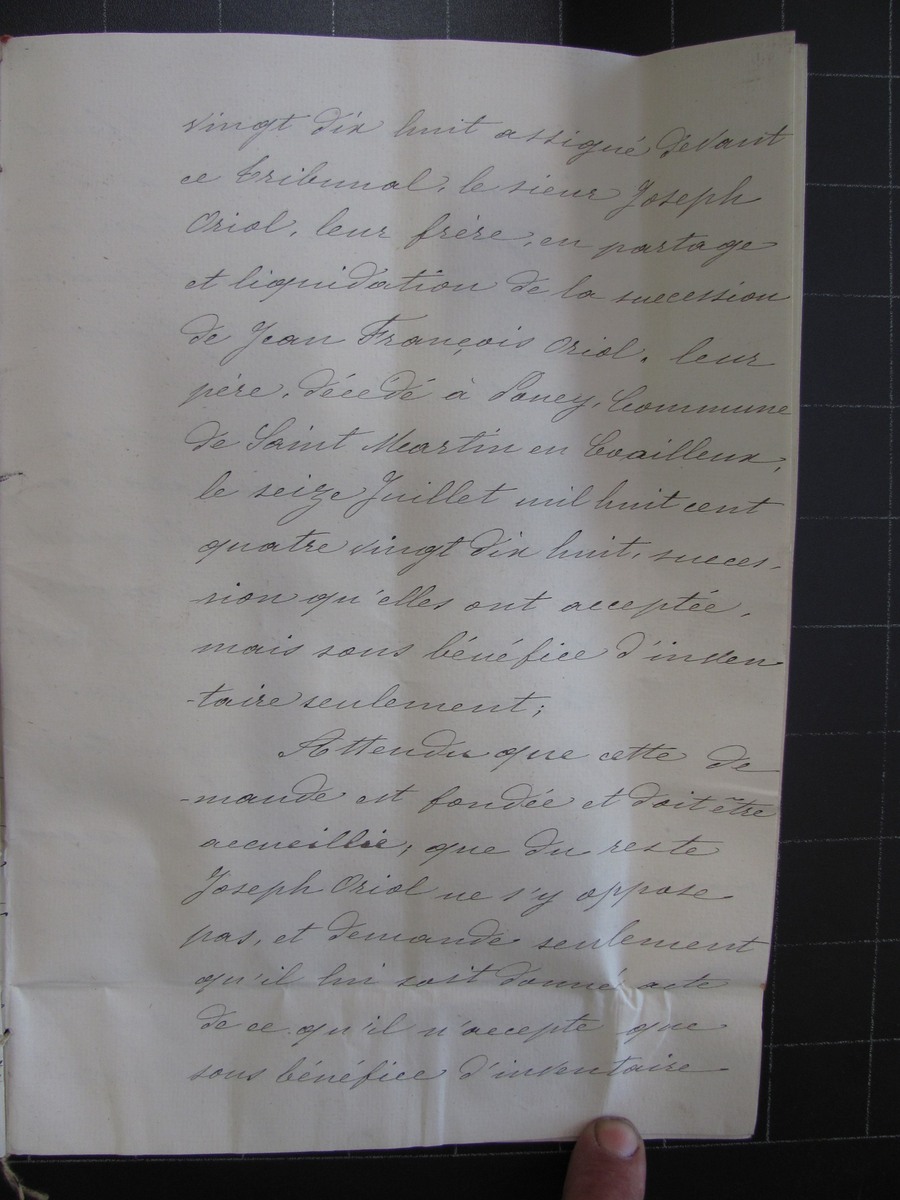 vingt dix huit assigné devant
ce tribunal, le sieur Joseph
Oriol, leur frère, en partage
et liquidation de la succession
de Jean François Oriol, leur
père, décédé à Poney, Commune
de Saint Martin en Coailleux,
le seize Juillet mil huit cent
quatre vingt dix huit, succes-
sion qu'elles ont acceptée,
mais sous bénéfice d'inven
-taire seulement;
Attendu que cette de
-mande est fondée et doit être
accueillie; que du reste
Joseph Oriol ne s'y oppose
pas, et demande seulement
qu'il lui soit donné acte
de ce qu'il n'accepte que
sous bénéfice d'inventaire